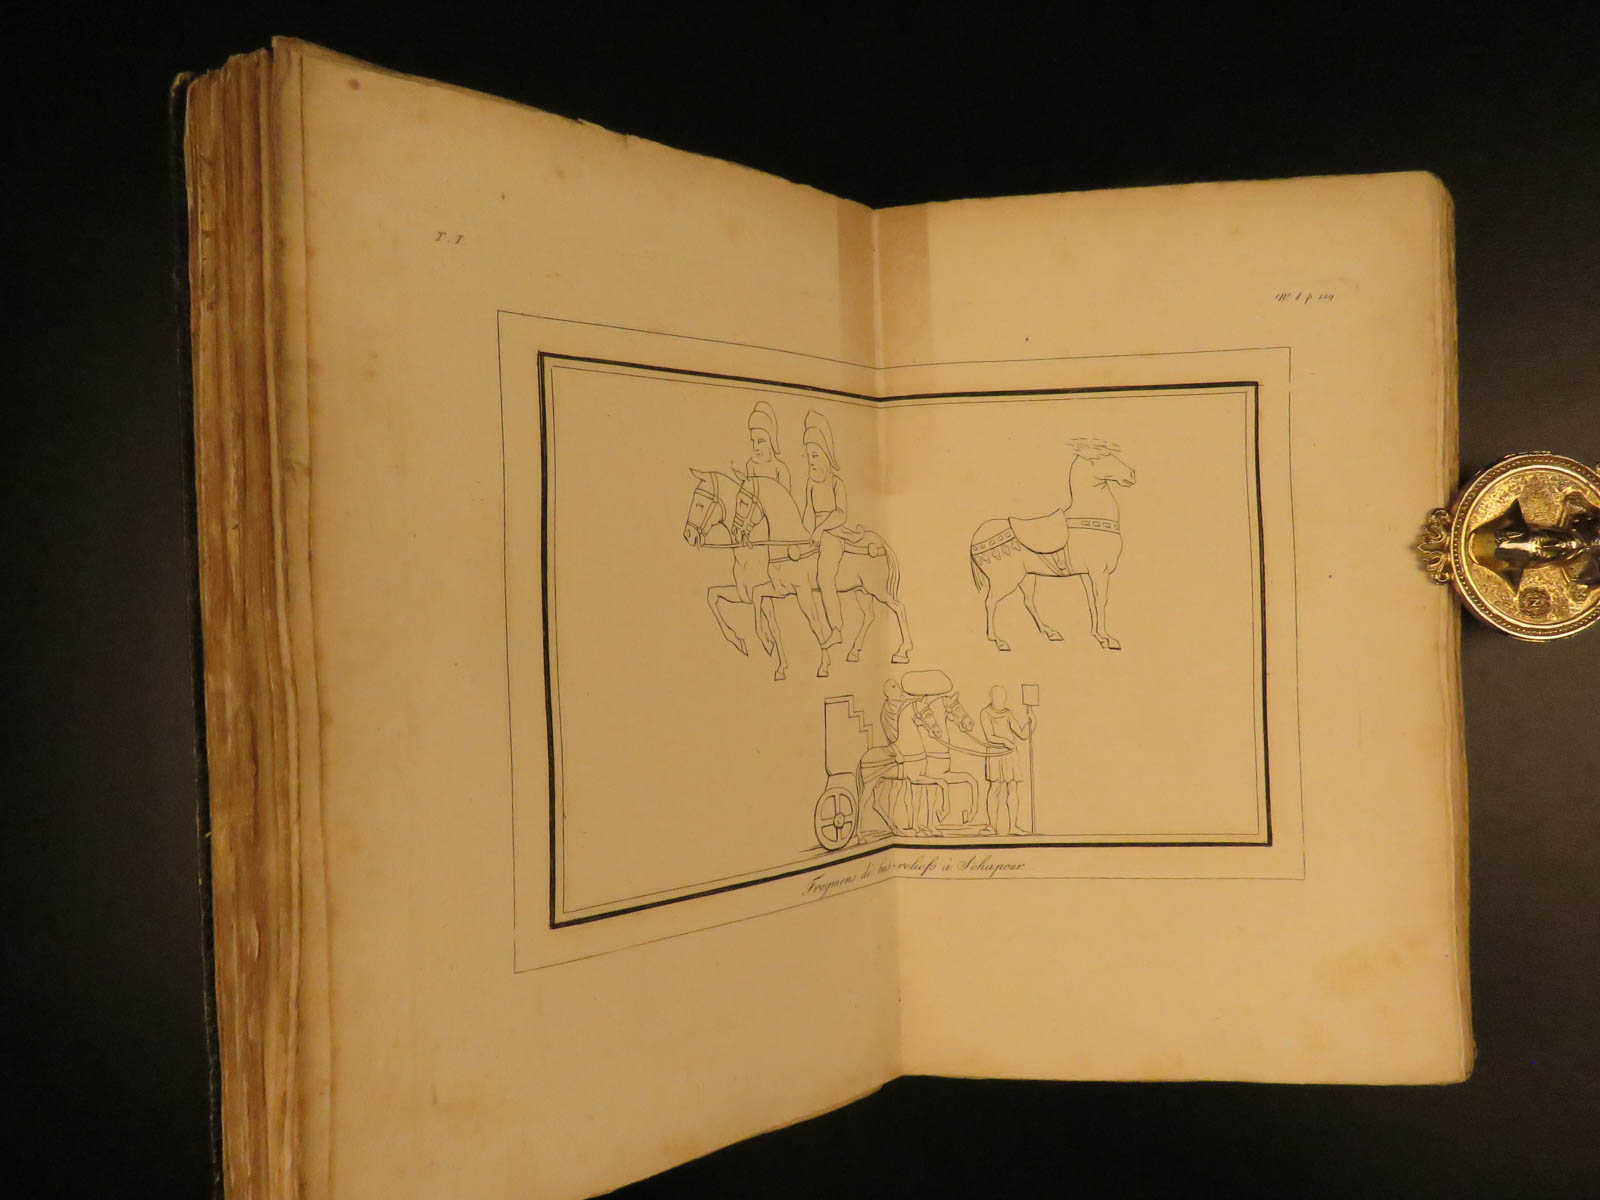 T. I
N.º 6 p. 129
Fragmens de bas-reliefs à Schapour.